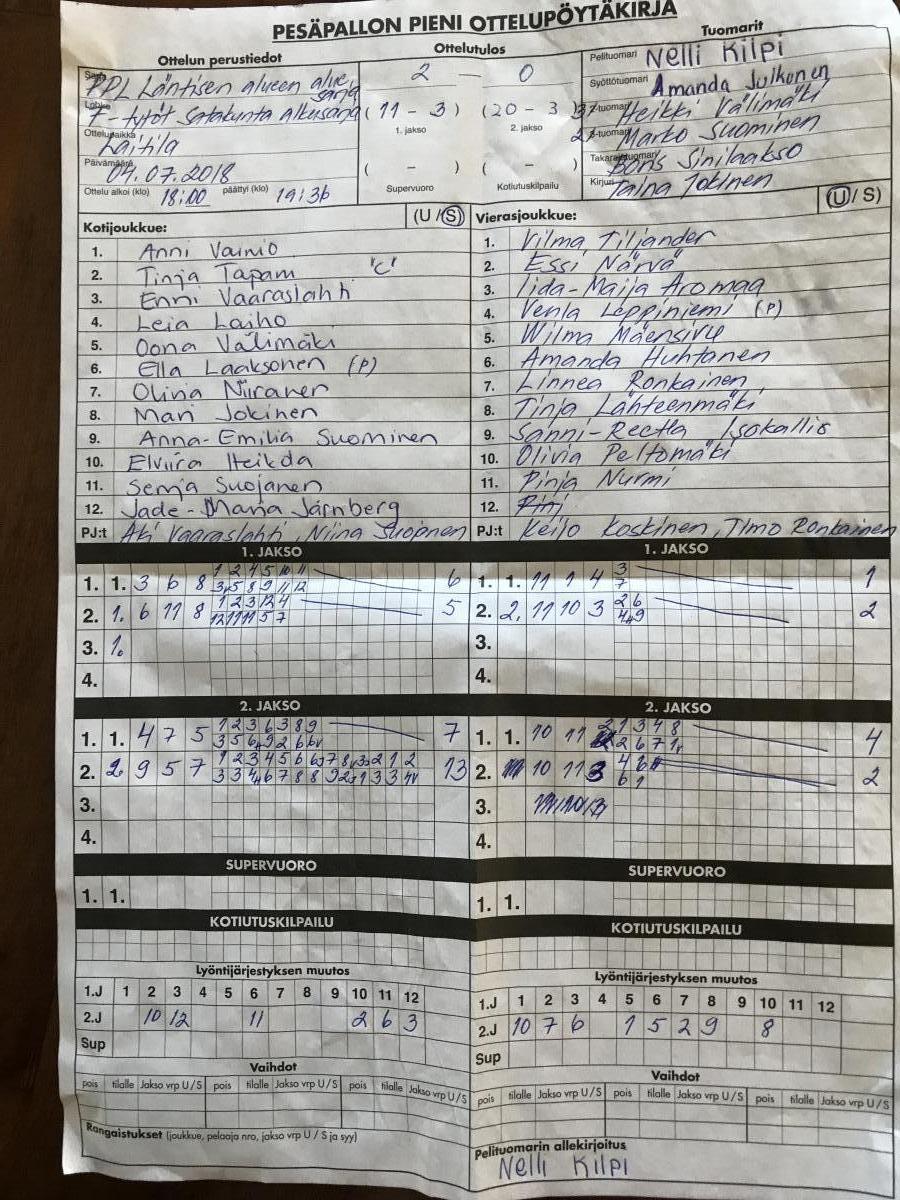 PESÄPALLON PIENI OTTELUPÖYTÄKIRJA
Ottelun perustiedot
Ottelutulos
Tuomarit
Sarja PPL Läntisen alueen alue sarja
Lohko F-tytöt Satakunta alkusarja
Ottelupaikka Laitila
Päivämäärä 04.07.2018
Ottelu alkoi (klo) 18:00 päättyi (klo) 19:36
2 — 0
(11 - 3) (20 - 3)
1. jakso 2. jakso
( - ) ( - )
Supervuoro Kotiutuskilpailu
Pelituomari Nelli Kilpi
Syöttötuomari Amanda Julkunen
3-tuomari Heikki Välimäki
2-tuomari Marko Suominen
Takarajatuomari Boris Sinilaakso
Kirjuri Taina Jokinen
Kotijoukkue: (U / S)
1. Anni Vainio
2. Tinja Tapani "C"
3. Enni Vaaraslahti
4. Leia Laiho
5. Oona Välimäki
6. Ella Laaksonen (P)
7. Olivia Niiranen
8. Mari Jokinen
9. Anna-Emilia Suominen
10. Elviira Heikola
11. Senja Suojanen
12. Jade-Maria Järnberg
PJ:t Aki Vaaraslahti, Niina Suojanen
Vierasjoukkue: (U / S)
1. Vilma Tiljander
2. Essi Närvä
3. Iida-Maija Aromaa
4. Venla Leppiniemi (P)
5. Wilma Mäensivu
6. Amanda Huhtanen
7. Linnea Ronkainen
8. Tinja Lähteenmäki
9. Sanni-Reetta Isokallio
10. Olivia Peltomäki
11. Pinja Nurmi
12.
PJ:t Keijo Koskinen, Timo Ronkainen
1. JAKSO
1. 1. 3 6 8 1 2 4 5 10 11 6
3 5 8 9 11 12
2. 1. 6 11 8 1 2 3 12 4 5
12 11 11 5 7
3. 1.
4.
1. JAKSO
1. 1. 11 1 4 3 1
7
2. 2. 11 10 3 2 6 2
4 9
3.
4.
2. JAKSO
1. 1. 4 7 5 1 2 3 6 3 8 9 7
2. 2. 9 5 7 13
3.
4.
2. JAKSO
1. 1. 10 11 2 1 3 4 8 4
2 6 7 1
2. 10 11 3 4 6 2
6 1
3.
4.
SUPERVUORO
1. 1.
SUPERVUORO
1. 1.
KOTIUTUSKILPAILU
KOTIUTUSKILPAILU
Lyöntijärjestyksen muutos
1.J 1 2 3 4 5 6 7 8 9 10 11 12
2.J 10 12 11 2 6 3
Sup
Lyöntijärjestyksen muutos
1.J 1 2 3 4 5 6 7 8 9 10 11 12
2.J 10 7 6 1 5 2 9 8
Sup
Vaihdot
pois tilalle Jakso vrp U / S pois tilalle Jakso vrp U / S pois tilalle Jakso vrp U / S
Vaihdot
pois tilalle Jakso vrp U / S pois tilalle Jakso vrp U / S pois tilalle Jakso vrp U / S
Rangaistukset (joukkue, pelaaja nro, jakso vrp U / S ja syy)
Pelituomarin allekirjoitus
Nelli Kilpi